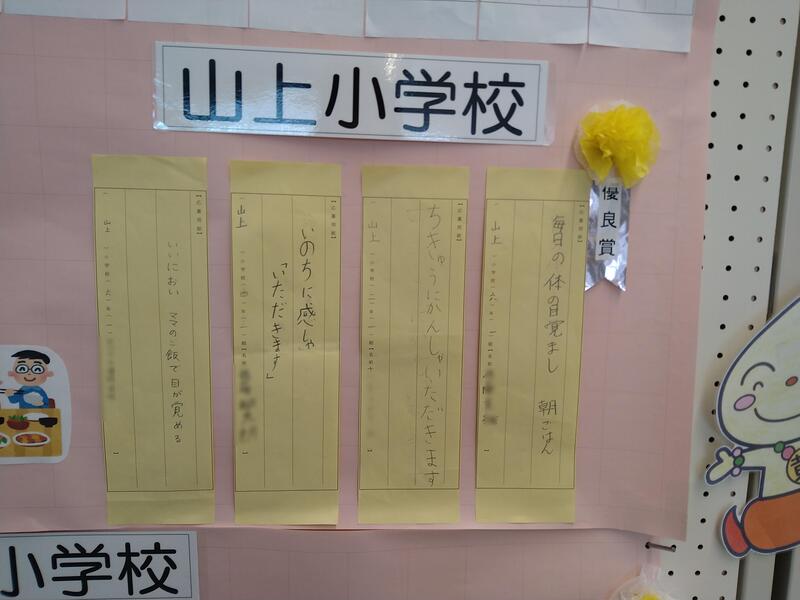 山上小学校
優良賞
【応募用紙】
毎日の体の目覚まし 朝ごはん
山上
【応募用紙】
ちきゅうにかんしゃいただきます
山上
【応募用紙】
いのちに感しゃ
「いただきます」
山上
【応募用紙】
いいにおい ママのご飯で目が覚める
山上
小学校